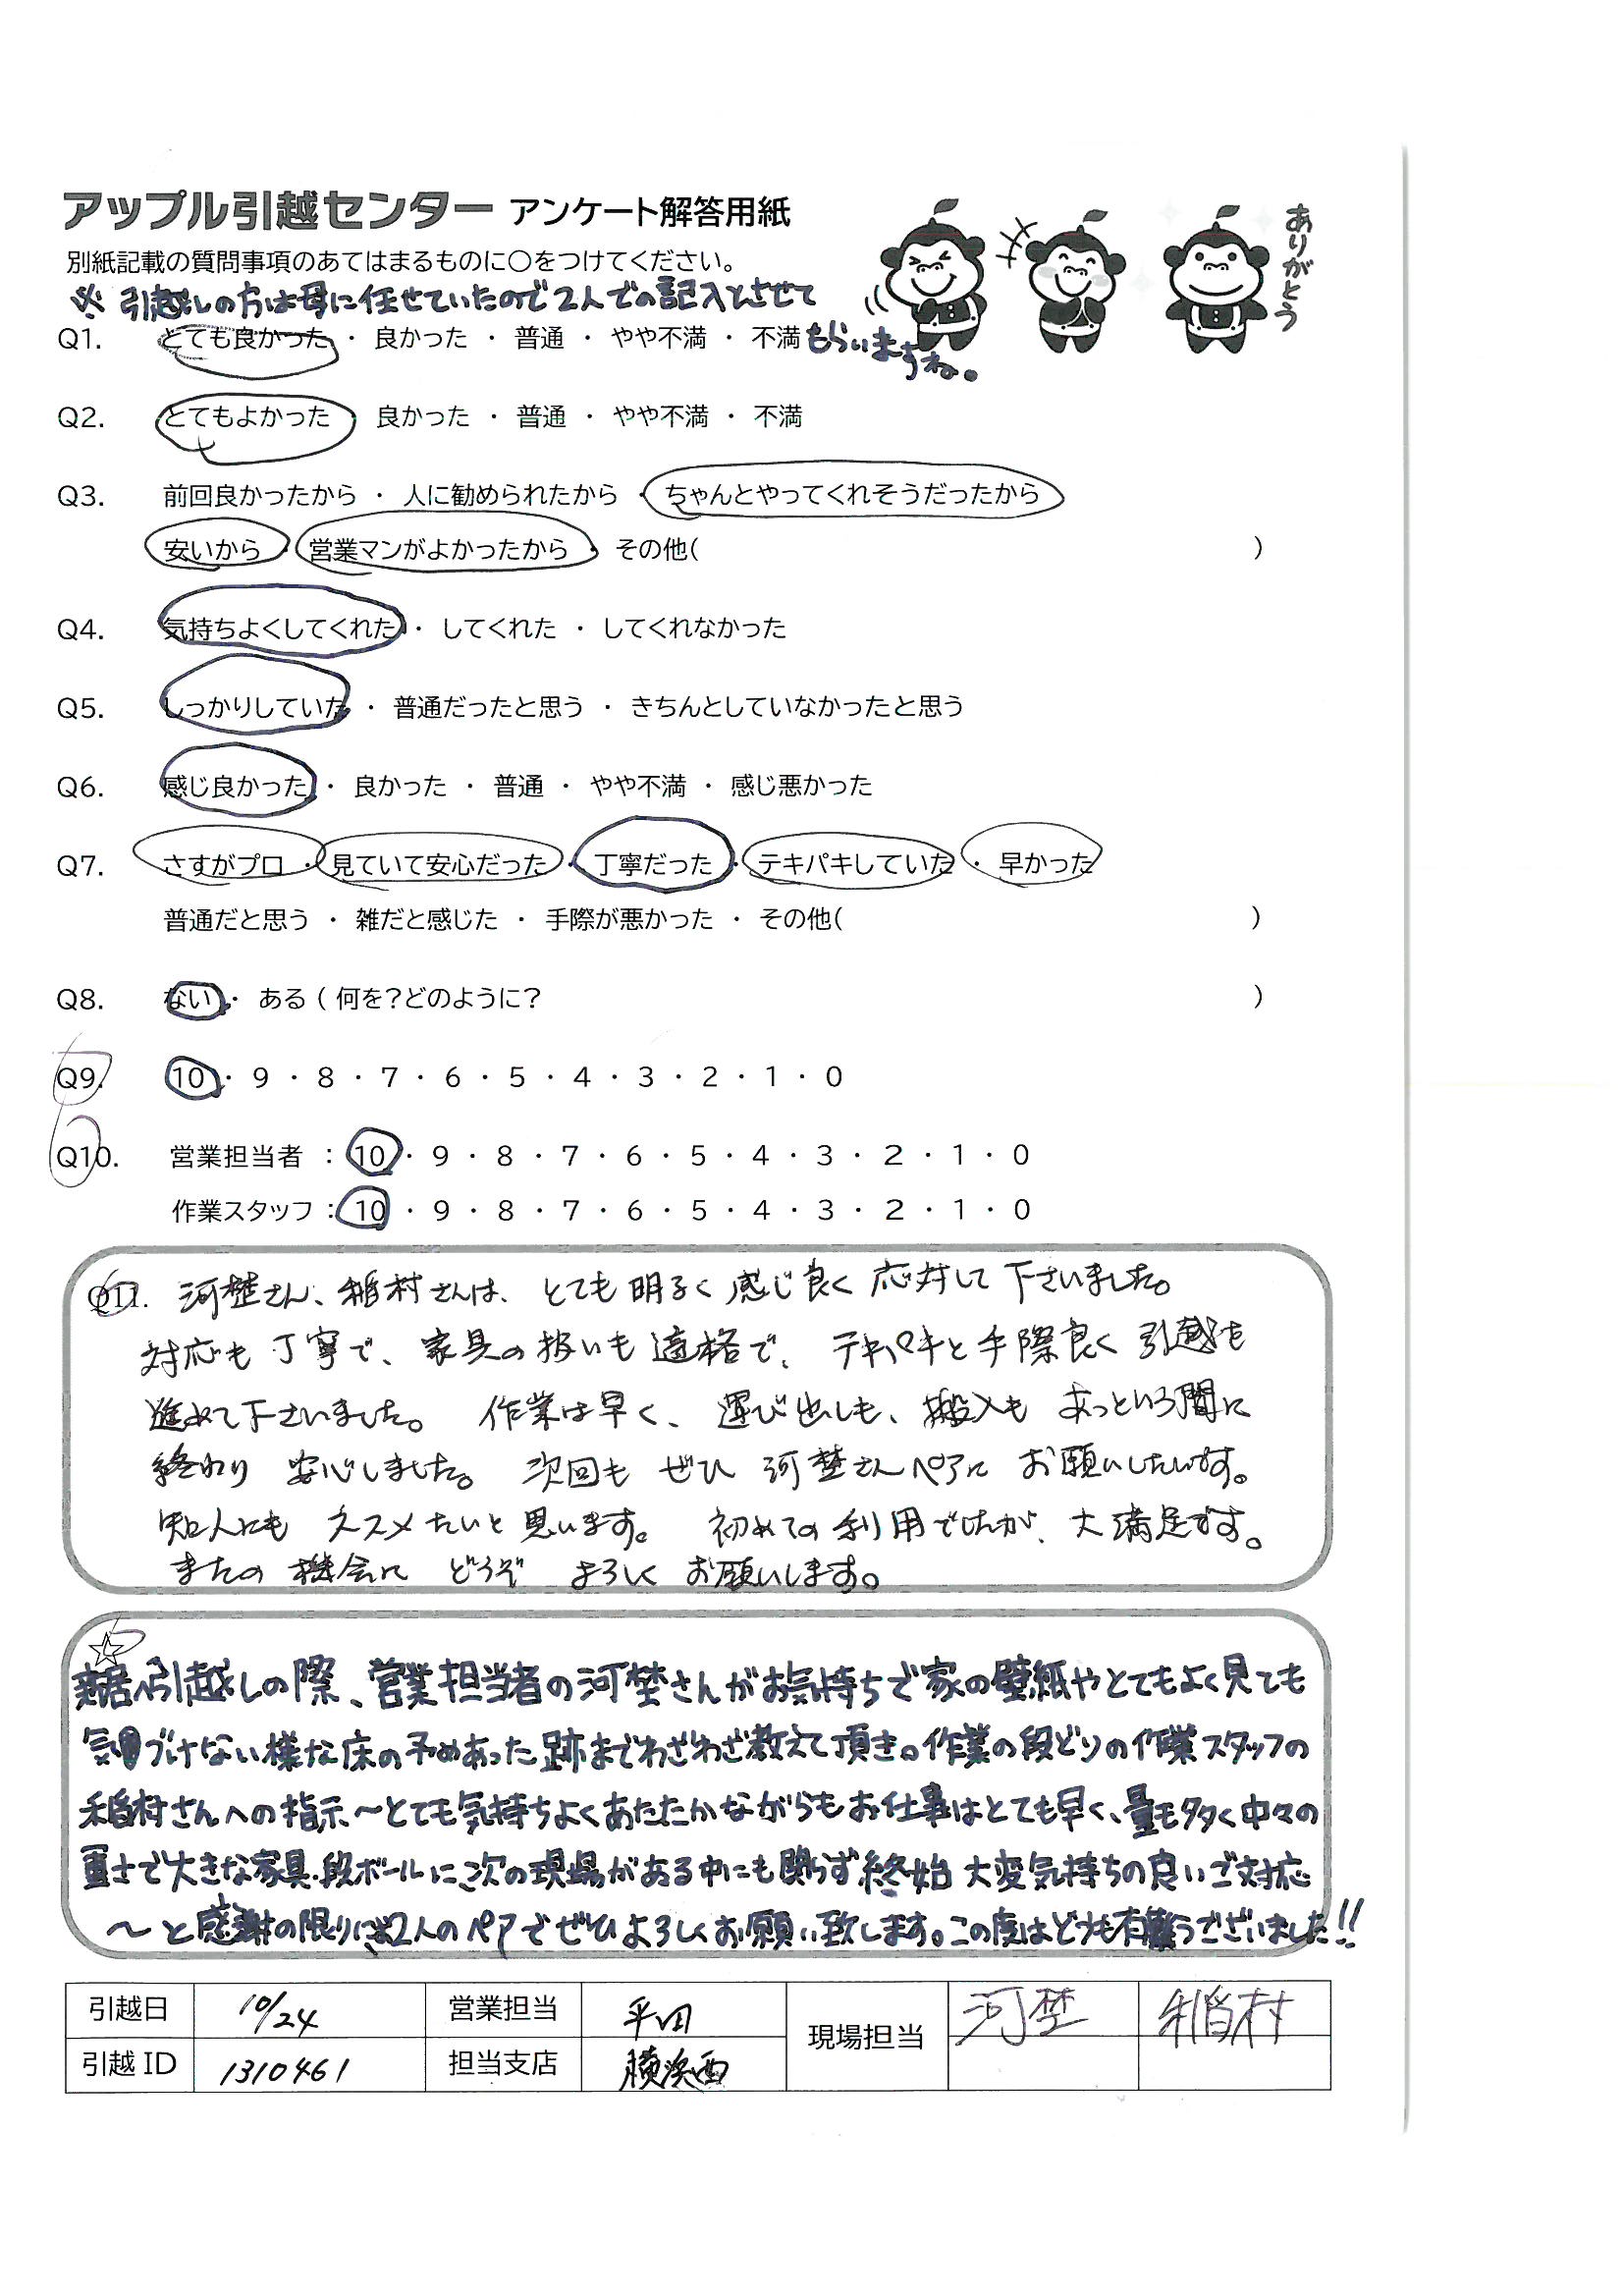 アップル引越センター アンケート解答用紙
別紙記載の質問事項のあてはまるものに○をつけてください。
ありがとう
※ 引越しの方は母に任せていたので2人での記入とさせて
もらいますね。
Q1. とても良かった ・ 良かった ・ 普通 ・ やや不満 ・ 不満
Q2. とてもよかった ・ 良かった ・ 普通 ・ やや不満 ・ 不満
Q3. 前回良かったから ・ 人に勧められたから ・ ちゃんとやってくれそうだったから
安いから ・ 営業マンがよかったから ・ その他( )
Q4. 気持ちよくしてくれた ・ してくれた ・ してくれなかった
Q5. しっかりしていた ・ 普通だったと思う ・ きちんとしていなかったと思う
Q6. 感じ良かった ・ 良かった ・ 普通 ・ やや不満 ・ 感じ悪かった
Q7. さすがプロ ・ 見ていて安心だった ・ 丁寧だった ・ テキパキしていた ・ 早かった
普通だと思う ・ 雑だと感じた ・ 手際が悪かった ・ その他( )
Q8. ない ・ ある ( 何を？どのように？ )
Q9. 10 ・ 9 ・ 8 ・ 7 ・ 6 ・ 5 ・ 4 ・ 3 ・ 2 ・ 1 ・ 0
Q10. 営業担当者 ： 10 ・ 9 ・ 8 ・ 7 ・ 6 ・ 5 ・ 4 ・ 3 ・ 2 ・ 1 ・ 0
作業スタッフ ： 10 ・ 9 ・ 8 ・ 7 ・ 6 ・ 5 ・ 4 ・ 3 ・ 2 ・ 1 ・ 0
Q11. 河埜さん、稲村さんは、とても明るく感じ良く応対して下さいました。
対応も丁寧で、家具の扱いも適格で、テキパキと手際良く引越を
進めて下さいました。 作業は早く、運び出しも、搬入もあっという間に
終わり 安心しました。 次回も ぜひ 河埜さんペアに お願いしたいです。
知人にも ススメたいと思います。 初めての利用でしたが、大満足です。
またの機会に どうぞ よろしく お願いします。
☆
新居へ引越しの際、営業担当者の河埜さんがお気持ちで家の壁紙やとてもよく見ても
気づけない様な床の予めあった跡までわざわざ教えて頂き。作業の段どりの作業スタッフの
稲村さんへの指示〜とても気持ちよくあたたかながらもお仕事はとても早く、量も多く中々の
重さで大きな家具、段ボールに次の現場がある中にも関らず終始大変気持ちの良いご対応
〜と感謝の限りに2人のペアでぜひよろしくお願い致します。この度はどうも有難うございました!!
引越日 10/24 営業担当 平田 現場担当 河埜 稲村
引越ID 1310461 担当支店 横浜西